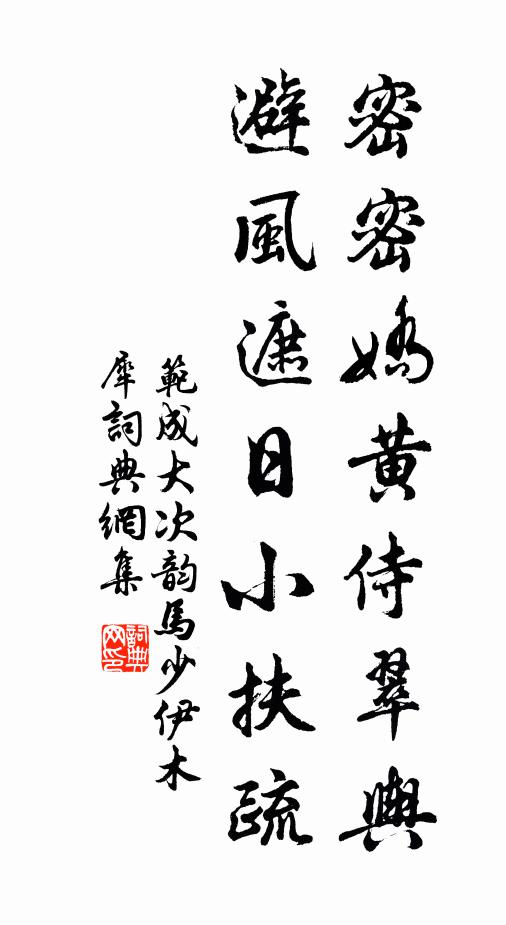 密密嬌黃侍翠輿
避風遮日小扶疏
範成大次韵馬少伊木
犀詞典網集
詞典
网印